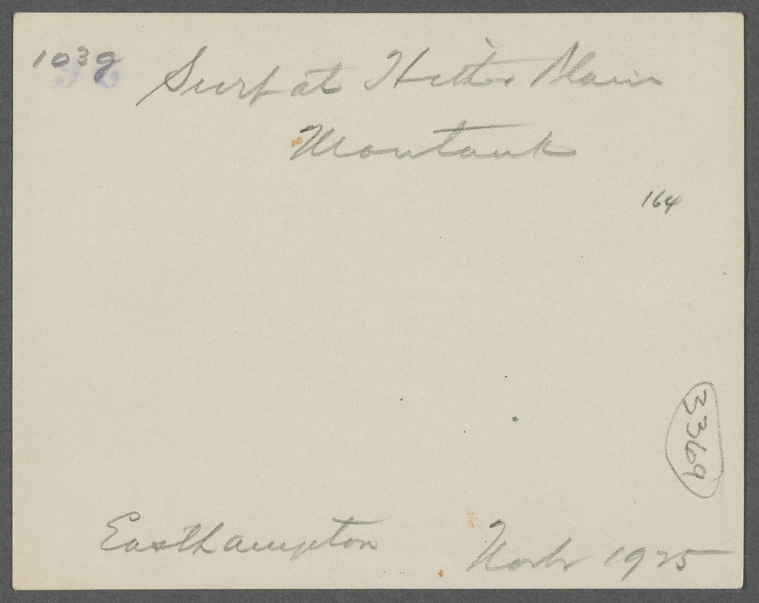 103g
Surf at Hither Plain
Montauk
164
3369
Easthampton
Novbr 1925